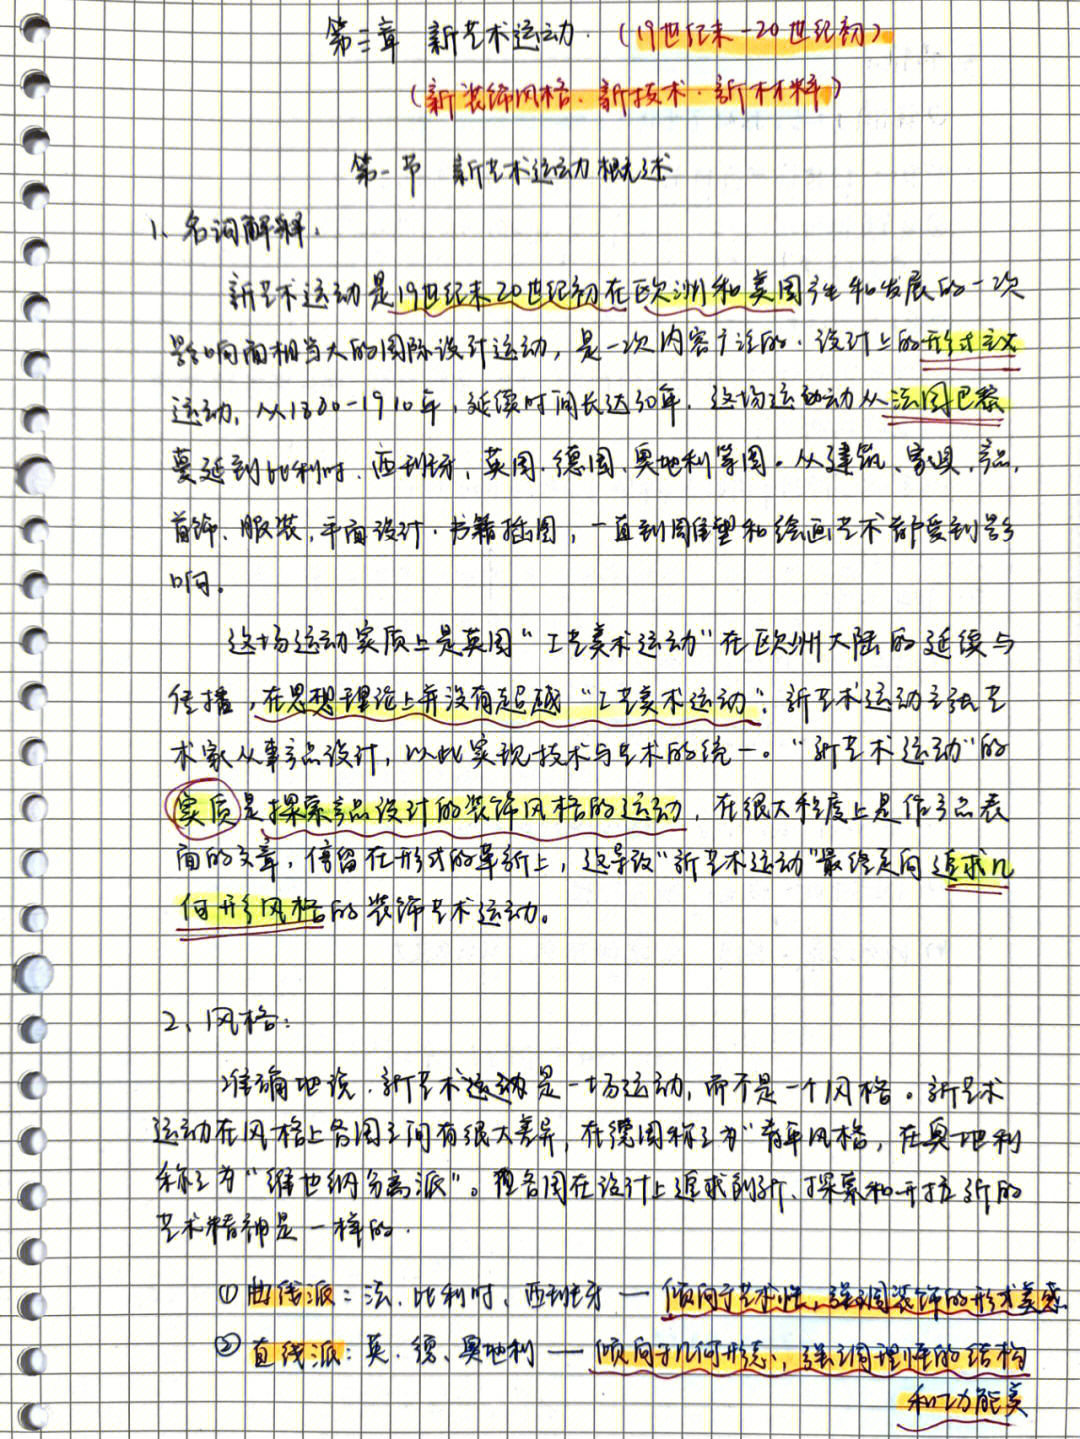 第三章 新艺术运动.（19世纪末-20世纪初）
（新装饰风格.新技术.新材料）
第一节 新艺术运动概述
1、名词解释.
新艺术运动是19世纪末20世纪初在欧洲和美国产生和发展的一次
影响面相当大的国际设计运动，是一次内容广泛的.设计上的形式主义
运动，从1880-1910年，延续时间长达30年，这场运动从法国巴黎
蔓延到比利时、西班牙，英国.德国、奥地利等国。从建筑、家具、产品，
首饰、服装，平面设计.书籍插图，一直到雕塑和绘画艺术都受到影
响。
这场运动实质上是英国“工艺美术运动”在欧洲大陆的延续与
传播，在思想理论上并没有超越“工艺美术运动”。新艺术运动主张艺
术家从事产品设计，以此实现技术与艺术的统一。“新艺术运动”的
实质是探索产品设计的装饰风格的运动，在很大程度上是作产品表
面的文章，停留在形式的革新上，这导致“新艺术运动”最终走向追求几
何形风格的装饰艺术运动。
2、风格：
准确地说.新艺术运动是一场运动，而不是一个风格。新艺术
运动在风格上各国之间有很大差异，在德国称之为“青年风格，在奥地利
称之为“维也纳分离派”。但各国在设计上追求创新、探索和开拓新的
艺术精神是一样的.
①曲线派：法.比利时、西班牙 — 倾向于艺术性，强调装饰的形式美感
②直线派：英.德、奥地利 — 倾向于几何形态，强调理性的结构
和功能美